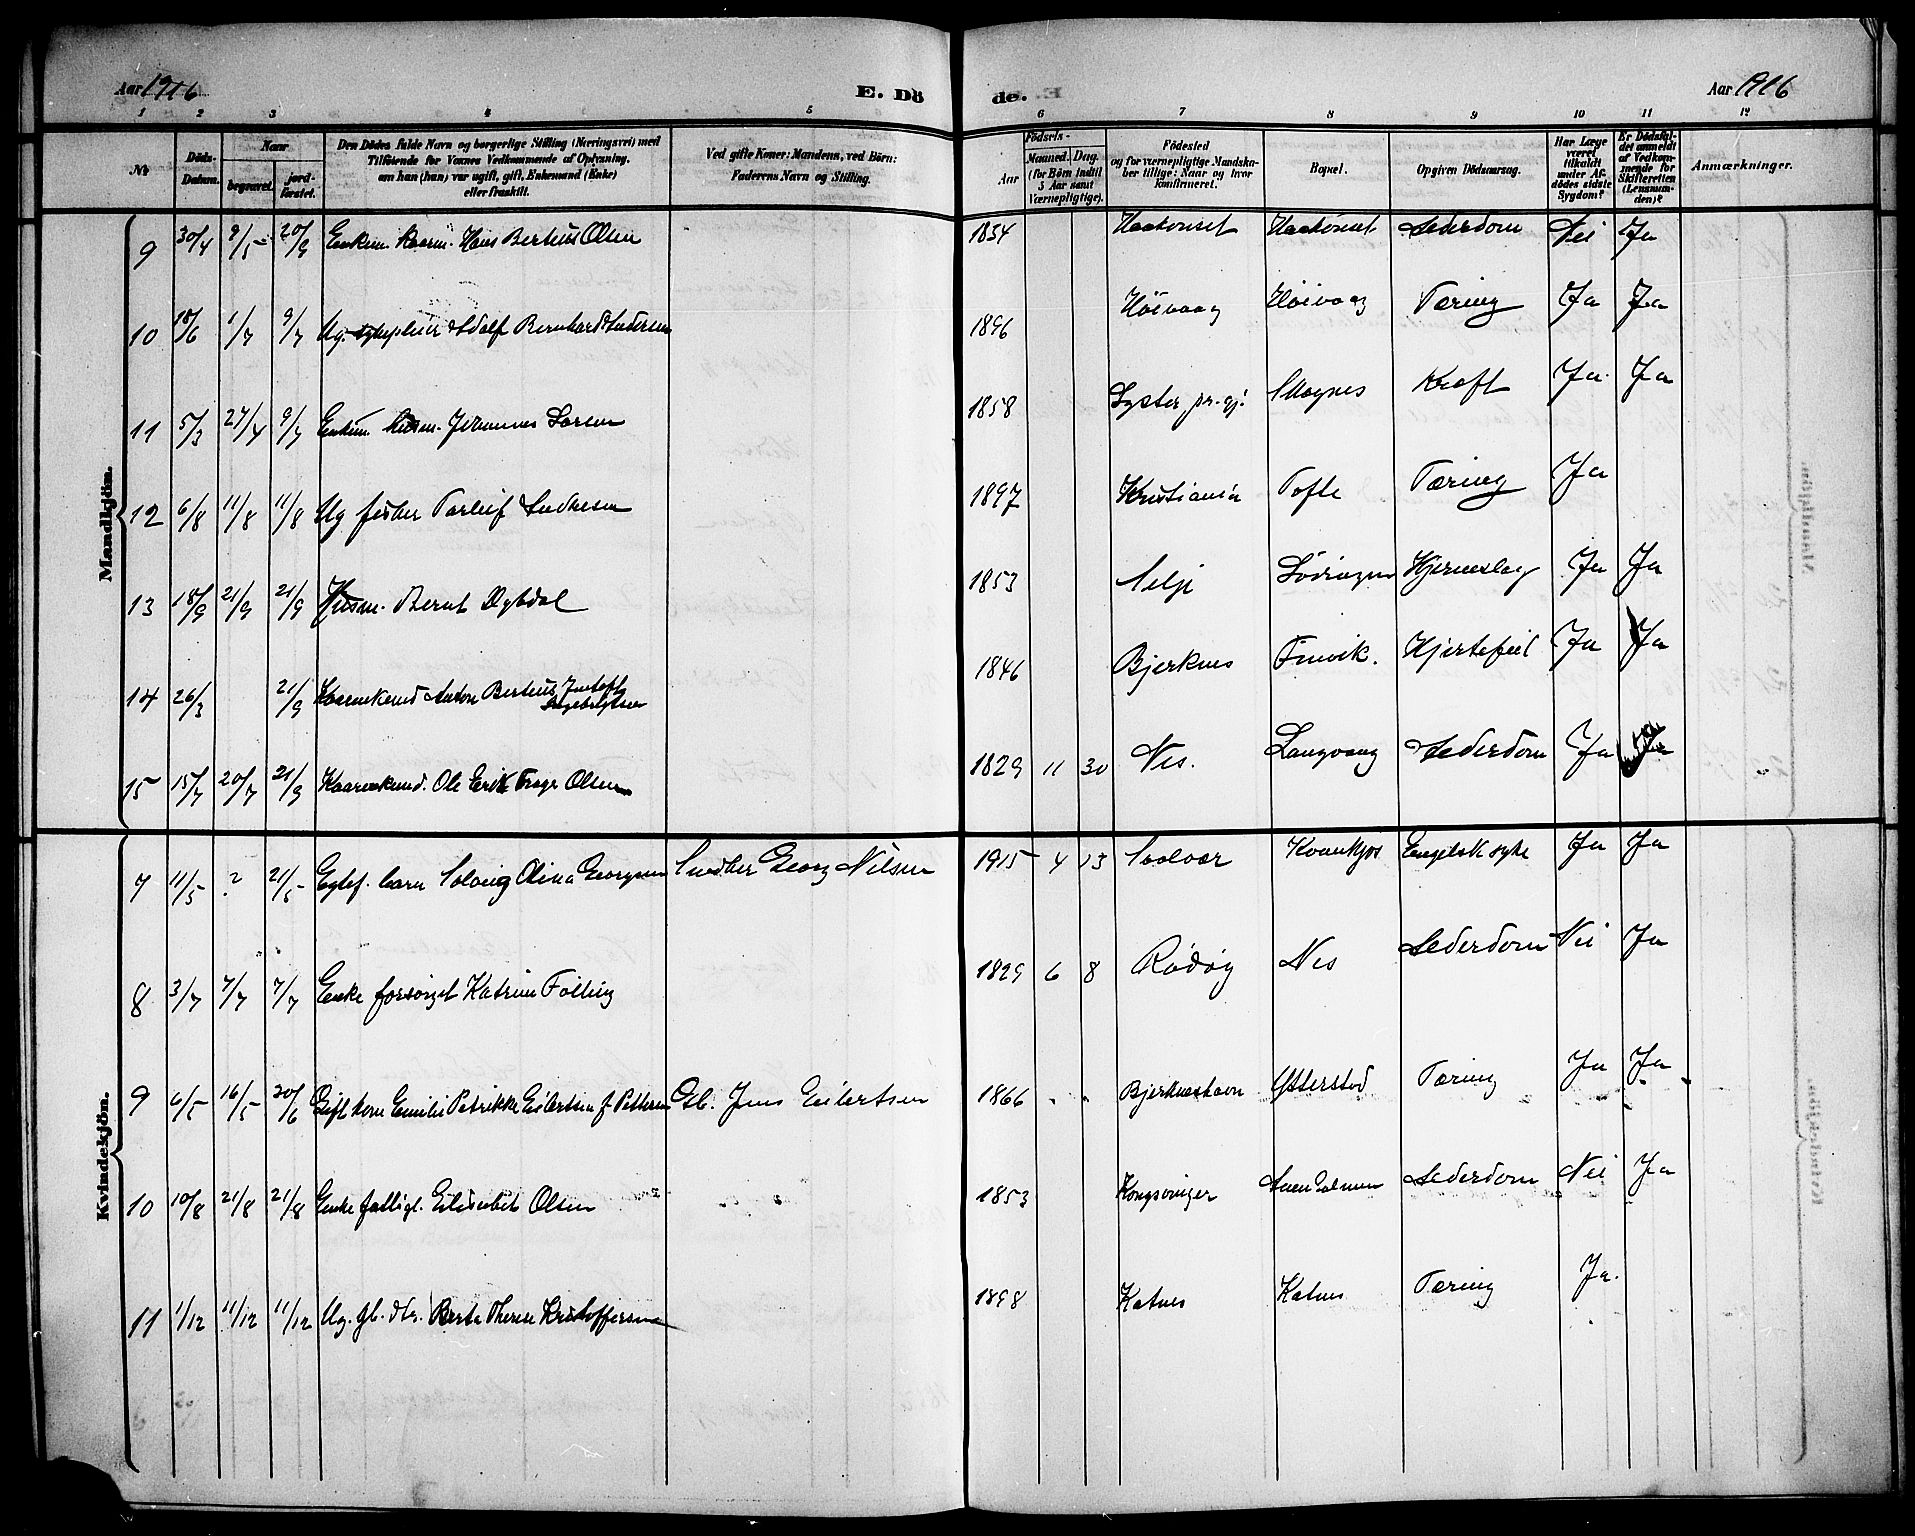 Aar 1916
E. Dö
de.
Aar 1916
1 2 3 4 5 6 7 8 9 10 11 12
№
Döds-Datum.
Naar
begravet.
jordfæstet.
Den Dödes fulde Navn og borgerlige Stilling (Næringsvei) med Tilföiende for Voxnes Vedkommende af Oplysning, om han (hun) var ugift, gift, Enkemand (Enke) eller fraskilt.
Ved gifte Koner: Mandens, ved Börn: Faderens Navn og Stilling.
Födsels-
Aar
Maaned. Dag.
(for Börn indtil 5 Aar samt Værnepligtige).
Födested og for værnepligtige Mandskaber tillige: Naar og hvor konfirmeret.
Bopæl.
Opgiven Dödsaarsag.
Har Læge været tilkaldt under Afdödes sidste Sygdom?
Er Dödsfaldet anmeldt af Vedkommende for Skifteretten (Lensmanden)?
Anmærkninger.
Mandkjön.
9 30/4 9/5 20/9 Enkem. kaarm. Hans Berteus Olsen 1834 Haakonset Haakonset Alderdom Nei Ja
10 18/6 1/7 9/7 Ug. Adolf Bernhard Andersen 1896 Höivaag Höivaag Tæring Ja Ja
11 5/3 27/4 9/7 Enkem. husm. Johannes Larsen 1858 Lyster pr.gj. Magnes Kræft Ja. Ja
12 6/8 11/8 11/8 Ug fisker Torleif 1897 Kristiania Tofte Tæring Ja
13 18/9 21/9 21/9 Husm. Bernt Dybdal 1853 Selje Lödingen Hjerneslag Ja Ja
14 26/3 21/9 Kaarenkemd Anton Berteus Jentoft Ingebrigtsen 1846 Bjerknes Finvik. Hjertefeil Ja Ja
15 15/7 20/7 21/9 Kaarenkemd. Ole Erik Olsen 1829 11 30 Nes. Langvaag Alderdom Ja Ja
Kvindekjön.
7 11/5 ? 21/5 Egtef. barn Solveig Olina Georgsen Snedker Georg Nilsen 1915 4 13 Solvær Engelsk syke Ja Ja
8 3/7 7/7 7/7 Enke forsörget Katrine Følling 1829 6 8 Rödöy Nes Alderdom Nei Ja
9 6/5 16/5 20/6 Gift kone Emilie Petrikke Eilertsen f. Pettersen Gb. Jens Eilertsen 1866 " " Bjerknæshavn Ytterstad Tæring Ja Ja
10 10/8 21/8 21/8 Enke fattigl. Elisabet Olsen " " 1853 Kongsvinger Alderdom Nei Ja
11 1/12 11/12 11/12 Ug. gb. dtr. Berta Therese Kristoffersen 1898 Katnes Katnes Tæring Ja.